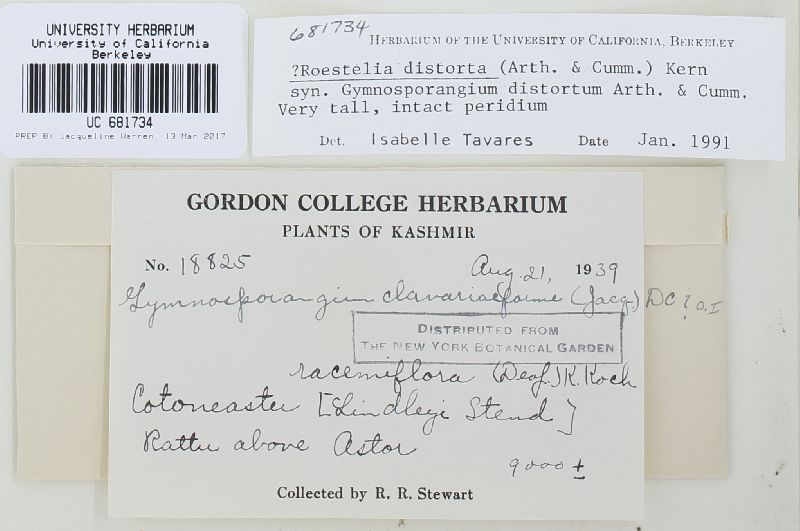 UNIVERSITY HERBARIUM
University of California
Berkeley
UC 681734
PREP BY Jacqueline Warren, 13 Mar 2017
681734
HERBARIUM OF THE UNIVERSITY OF CALIFORNIA, BERKELEY
?Roestelia distorta (Arth. & Cumm.) Kern
syn. Gymnosporangium distortum Arth. & Cumm.
Very tall, intact peridium
Det. Isabelle Tavares Date Jan. 1991
GORDON COLLEGE HERBARIUM
PLANTS OF KASHMIR
No. 18825 Aug. 21, 1939
Gymnosporangium clavariaeforme (Jacq.) DC ? O.I
DISTRIBUTED FROM
THE NEW YORK BOTANICAL GARDEN
racemiflora (Desf.) K. Koch
Cotoneaster [Lindleyi Steud]
Rattu above Astor
9000 ±
Collected by R. R. Stewart